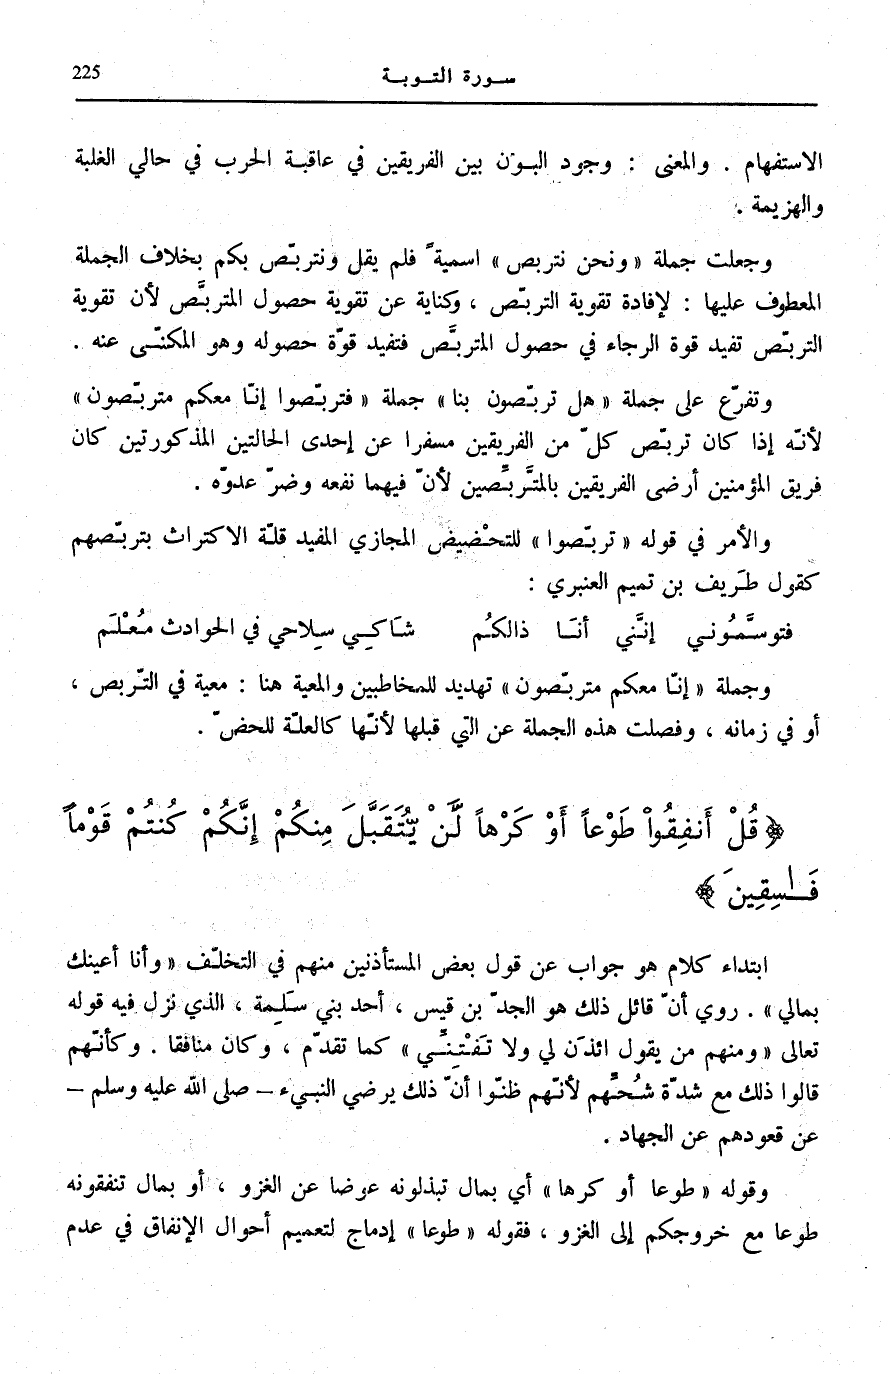 سورة التوبة 225
الاستفهام . والمعنى : وجود البوْن بين الفريقين في عاقبة الحرب في حالي الغلبة
والهزيمة .
وجعلت جملة « ونحن نتربص » اسمية ً فلم يقل ونتربّص بكم بخلاف الجملة
المعطوف عليها : لإفادة تقوية التربّص ، وكناية عن تقوية حصول المتربَّص لأن تقوية
التربّص تفيد قوة الرجاء في حصول المتربَّص فتفيد قوّة حصوله وهو المكنّى عنه .
وتفرّع على جملة « هل تربّصون بنا » جملة « فتربّصوا إنّا معكم متربّصون »
لأنّه إذا كان تربّص كلّ من الفريقين مسفرا عن إحدى الحالتين المذكورتين كان
فريق المؤمنين أرضى الفريقين بالمتَربِّصين لأنّ فيهما نفعه وضرّ عدوّه .
والأمر في قوله « تربّصوا » للتحْضيض المجازي المفيد قلّة الاكتراث بتربّصهم
كقول طَريف بن تميم العنبري :
فتوسَّمُوني إنَّني أنَا ذالكُم شَاكِي سِلاحي في الحوادث مُعْلَم
وجملة « إنّا معكم متربّصون » تهديد للمخاطبين والمعية هنا : معية في التّربص ،
أو في زمانه ، وفصلت هذه الجملة عن التي قبلها لأنّها كالعلّة للحضّ .
﴿ قُلْ أَنفِقُواْ طَوْعاً أَوْ كَرْهاً لَّنْ يُّتَقَبَّلَ مِنكُمْ إِنَّكُمْ كُنتُمْ قَوْماً
فَـٰسِقِينَ ﴾
ابتداء كلام هو جواب عن قول بعض المستأذنين منهم في التخلّف « وأنا أعينك
بمالي » . روي أنّ قائل ذلك هو الجدّ بن قيس ، أحد بني سَلِمة ، الذي نزل فيه قوله
تعالى « ومنهم من يقول ائذَن لي ولا تَفْتِنِّي » كما تقدّم ، وكان منافقا . وكأنّهم
قالوا ذلك مع شدّة شُحِّهم لأنّهم ظنّوا أنّ ذلك يرضي النبيء – صلى الله عليه وسلم –
عن قعودهم عن الجهاد .
وقوله « طوعا أو كرها » أي بمال تبذلونه عوضا عن الغزو ، أو بمال تنفقونه
طوعا مع خروجكم إلى الغزو ، فقوله « طوعا » إدماج لتعميم أحوال الإنفاق في عدم